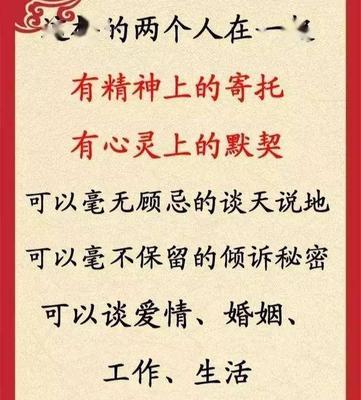 的两个人在一
有精神上的寄托
有心灵上的默契
可以毫无顾忌的谈天说地
可以毫不保留的倾诉秘密
可以谈爱情、婚姻、
工作、生活